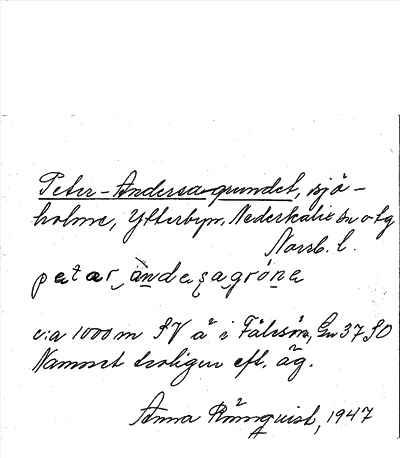 Peter-Andersagrundet, sjö-
holme, Ytterbyn, Nederkalix sn o tg
Norrb. l.
petər ande sagrönə
c:a 1000 m SV ä i Fålesön, Gn 37 SO
Namnet troligen eft. äg.
Anna Rönnquist, 1947